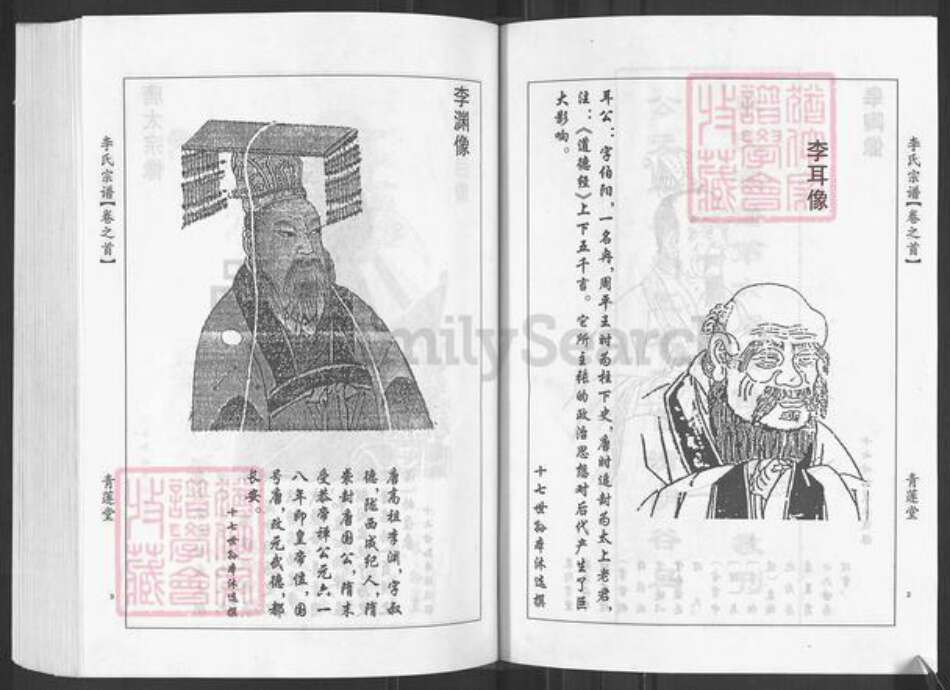 李氏宗谱【卷之首】
青莲堂
2
李耳像
耳公：字伯阳，一名冉，周平王时为柱下史，唐时追封为太上老君，
注：《道德经》上下五千言。它所主张的政治思想对后代产生了巨
大影响。
十七世孙孝休远撰
李渊像
唐高祖李渊，字叔
德，陇西成纪人，隋
袭封唐国公，隋末
受恭帝禅公元六一
八年即皇帝位，国
号唐，改元武德，都
长安。
十七世孙孝休远撰
李氏宗谱【卷之首】
青莲堂
3
FamilySearch